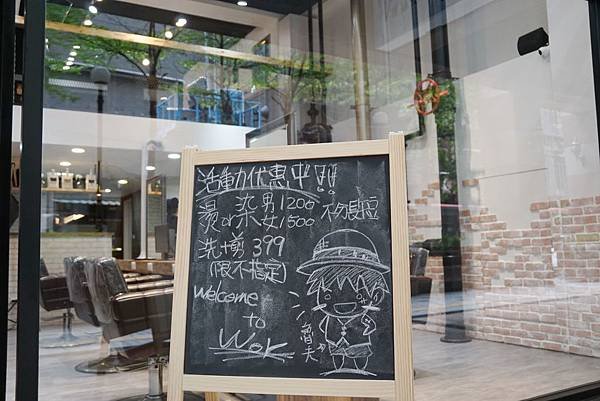 活動優惠中!!
燙or染 男1200 女1500 不分髮長
洗+剪 399
(限不指定)
Welcome
to
W.K
魯夫